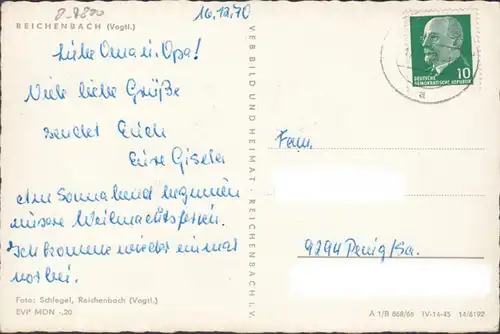 D-9800
16.12.70
REICHENBACH (Vogtl.)
Liebe Oma u. Opa!
Viele liebe Grüße
sendet Euch
Eure Gisela
Am Sonnabend beginnen
unsere Weihnachtsferien.
Ich komme wieder einmal
vorbei.
Foto: Schlegel, Reichenbach (Vogtl.)
EVP MDN -,20
VEB BILD UND HEIMAT · REICHENBACH i. V.
10
DEUTSCHE
DEMOKRATISCHE REPUBLIK
a
Fam.
9294 Penig/Sa.
A 1/B 868/66 IV-14-45 14/6192